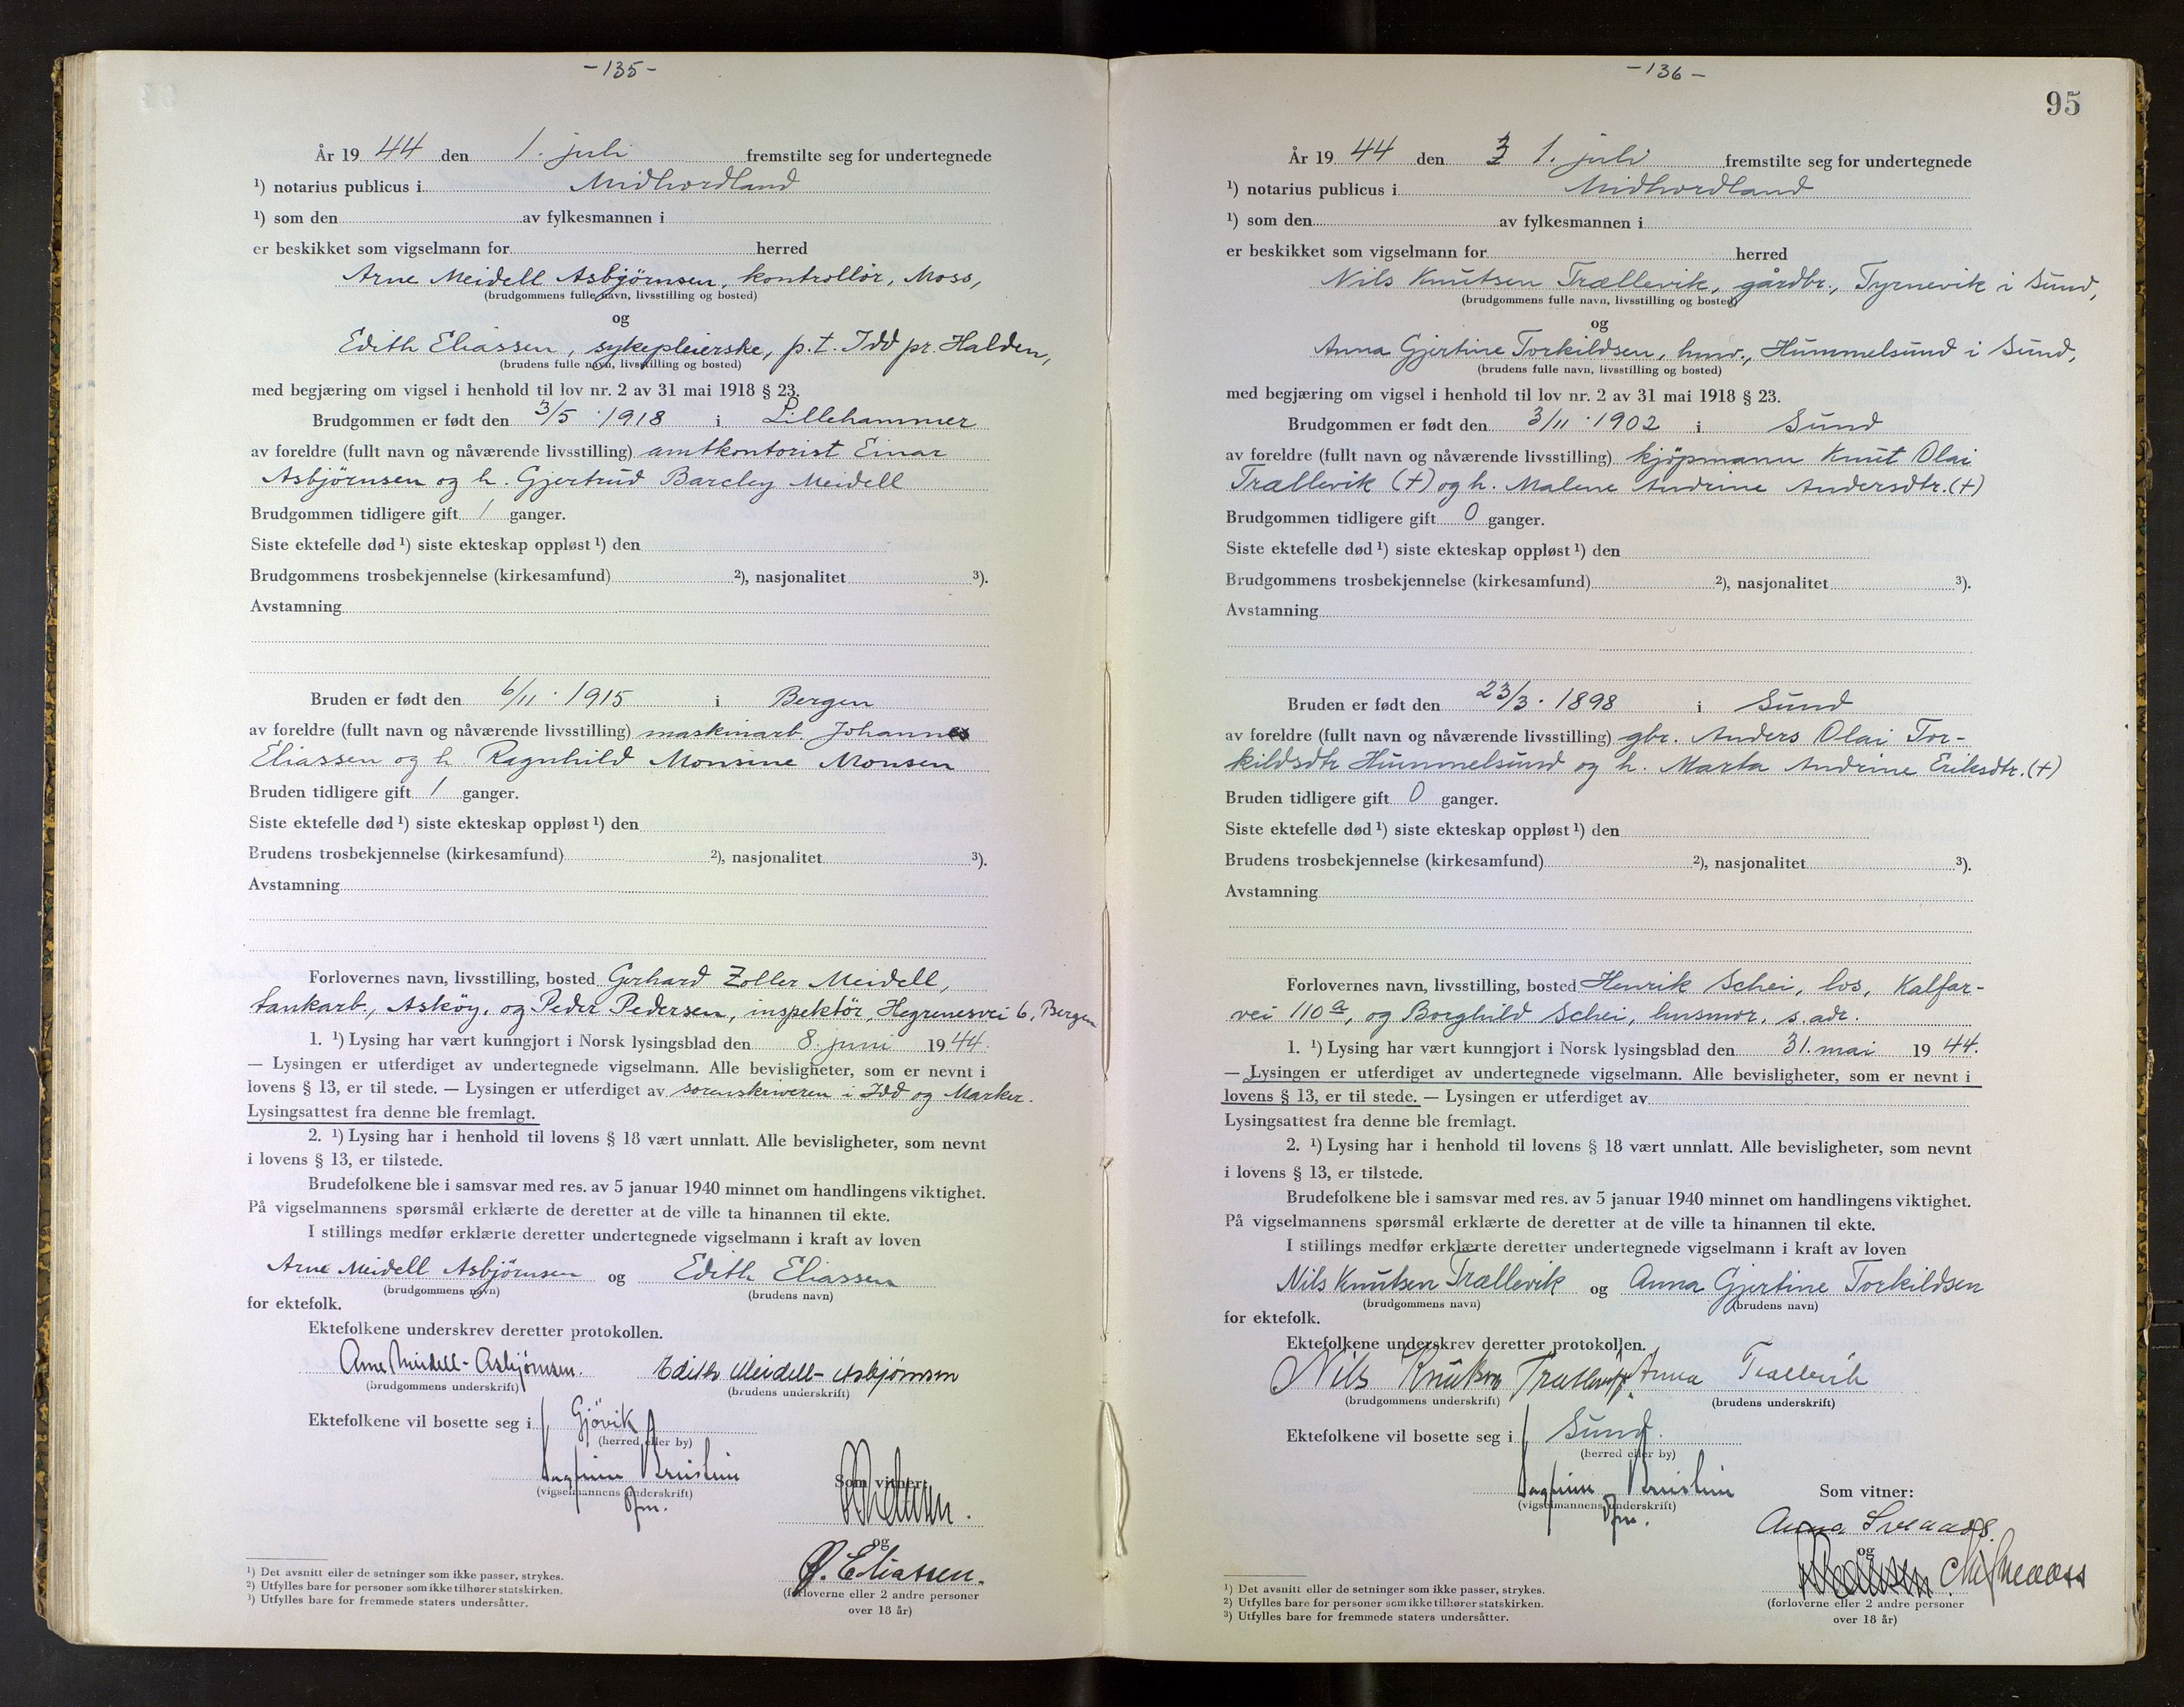 -135-
År 19 44 den 1. juli fremstilte seg for undertegnede
¹) notarius publicus i Midhordland
¹) som den av fylkesmannen i
er beskikket som vigselmann for herred
Arne Meidell Asbjørnsen, kontrollør, Moss,
(brudgommens fulle navn, livsstilling og bosted)
og
Edith Eliassen, sykepleierske, p.t. Idd pr. Halden,
(brudens fulle navn, livsstilling og bosted)
med begjæring om vigsel i henhold til lov nr. 2 av 31 mai 1918 § 23.
Brudgommen er født den 3/5 1918 i Lillehammer
av foreldre (fullt navn og nåværende livsstilling) amtkontorist Einar
Asbjørnsen og h. Gjertrud Barcley Meidell
Brudgommen tidligere gift 1 ganger.
Siste ektefelle død ¹) siste ekteskap oppløst ¹) den
Brudgommens trosbekjennelse (kirkesamfund) ²), nasjonalitet ³).
Avstamning
Bruden er født den 6/11. 1915 i Bergen
av foreldre (fullt navn og nåværende livsstilling) maskinarb. Johannes
Eliassen og h. Ragnhild Monsine Monsen
Bruden tidligere gift 1 ganger.
Siste ektefelle død ¹) siste ekteskap oppløst ¹) den
Brudens trosbekjennelse (kirkesamfund) ²), nasjonalitet ³).
Avstamning
Forlovernes navn, livsstilling, bosted Gerhard Zoller Meidell,
tankarb., Askøy, og Peder Pedersen, inspektør, Hegrenesvei 6, Bergen
1. ¹) Lysing har vært kunngjort i Norsk lysingsblad den 8. juni 1944.
— Lysingen er utferdiget av undertegnede vigselmann. Alle bevisligheter, som er nevnt i
lovens § 13, er til stede. — Lysingen er utferdiget av sorenskriveren i Idd og Marker.
Lysingsattest fra denne ble fremlagt.
2. ¹) Lysing har i henhold til lovens § 18 vært unnlatt. Alle bevisligheter, som nevnt
i lovens § 13, er tilstede.
Brudefolkene ble i samsvar med res. av 5 januar 1940 minnet om handlingens viktighet.
På vigselmannens spørsmål erklærte de deretter at de ville ta hinannen til ekte.
I stillings medfør erklærte deretter undertegnede vigselmann i kraft av loven
Arne Meidell Asbjørnsen og Edith Eliassen
(brudgommens navn) (brudens navn)
for ektefolk.
Ektefolkene underskrev deretter protokollen.
Arne Meidell-Asbjørnsen. Edith Meidell-Asbjørnsen
(brudgommens underskrift) (brudens underskrift)
Ektefolkene vil bosette seg i Gjøvik
(herred eller by)
(vigselmannens underskrift)
Som vitner:
og
Eliassen.
(forloverne eller 2 andre personer
over 18 år)
¹) Det avsnitt eller de setninger som ikke passer, strykes.
²) Utfylles bare for personer som ikke tilhører statskirken.
³) Utfylles bare for fremmede staters undersåtter.
-136-
95
År 19 44 den 1. juli fremstilte seg for undertegnede
¹) notarius publicus i Midhordland
¹) som den av fylkesmannen i
er beskikket som vigselmann for herred
Nils Knutsen Trællevik, gårdbr., Tyrnevik i Sund,
(brudgommens fulle navn, livsstilling og bosted)
og
Anna Gjertine Torkildsen, hmr., Hummelsund i Sund,
(brudens fulle navn, livsstilling og bosted)
med begjæring om vigsel i henhold til lov nr. 2 av 31 mai 1918 § 23.
Brudgommen er født den 3/11. 1902 i Sund
av foreldre (fullt navn og nåværende livsstilling) kjøpmann Knut Olai
Trællevik (+) og h. Malene Andrine Andersdtr. (+)
Brudgommen tidligere gift 0 ganger.
Siste ektefelle død ¹) siste ekteskap oppløst ¹) den
Brudgommens trosbekjennelse (kirkesamfund) ²), nasjonalitet ³).
Avstamning
Bruden er født den 23/3. 1898 i Sund
av foreldre (fullt navn og nåværende livsstilling) gbr. Anders Olai Tor-
kildsdtr Hummelsund og h. Marta Andrine Eriksdtr. (+)
Bruden tidligere gift 0 ganger.
Siste ektefelle død ¹) siste ekteskap oppløst ¹) den
Brudens trosbekjennelse (kirkesamfund) ²), nasjonalitet ³).
Avstamning
Forlovernes navn, livsstilling, bosted Henrik Schei, los, Kalfar-
vei 110 a, og Borghild Schei, husmor, s. adr.
1. ¹) Lysing har vært kunngjort i Norsk lysingsblad den 31. mai 1944.
— Lysingen er utferdiget av undertegnede vigselmann. Alle bevisligheter, som er nevnt i
lovens § 13, er til stede. — Lysingen er utferdiget av
Lysingsattest fra denne ble fremlagt.
2. ¹) Lysing har i henhold til lovens § 18 vært unnlatt. Alle bevisligheter, som nevnt
i lovens § 13, er tilstede.
Brudefolkene ble i samsvar med res. av 5 januar 1940 minnet om handlingens viktighet.
På vigselmannens spørsmål erklærte de deretter at de ville ta hinannen til ekte.
I stillings medfør erklærte deretter undertegnede vigselmann i kraft av loven
Nils Knutsen Trællevik og Anna Gjertine Torkildsen
(brudgommens navn) (brudens navn)
for ektefolk.
Ektefolkene underskrev deretter protokollen.
Nils Knutsen Trællevik Anna Trællevik
(brudgommens underskrift) (brudens underskrift)
Ektefolkene vil bosette seg i Sund.
(herred eller by)
(vigselmannens underskrift)
Som vitner:
Anna
og
(forloverne eller 2 andre personer
over 18 år)
¹) Det avsnitt eller de setninger som ikke passer, strykes.
²) Utfylles bare for personer som ikke tilhører statskirken.
³) Utfylles bare for fremmede staters undersåtter.